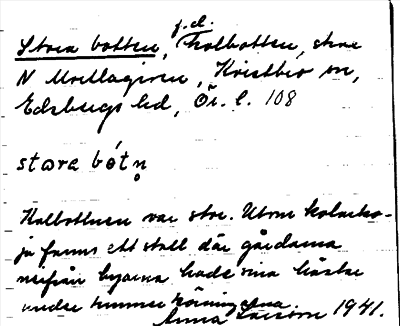 f.d.
Stora botten, Kolbotten, strax
N Morllagiren, Kvistbro sn,
Edsbergs hd, Ör. l. 108
stora bótn̥
Kolbottnen var stor. Utom kolarko-
ja fanns ett stall där gårdarna
nerifrån byarna hade sina hästar
under timmerkörningarna.
Anna Larsson 1941.